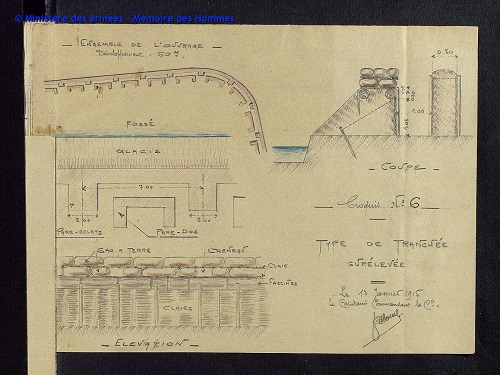 © Ministère des armées - Mémoire des Hommes
_ ENSEMBLE DE L'OUVRAGE _
Développement : 60 m.
FOSSÉ
GLACIS
7.00
2.00
2.00
PARE-ECLATS
PARE-DOS
SAC A TERRE
CRENEAU
CLAIE
FASCINES
CLAIES
_ ELEVATION _
0.80
1.00
_ COUPE _
_ Croquis N° 6 _
TYPE DE TRANCHÉE
SURÉLEVÉE
Le 13 Janvier 1915
Le Capitaine Commandant la Cie.